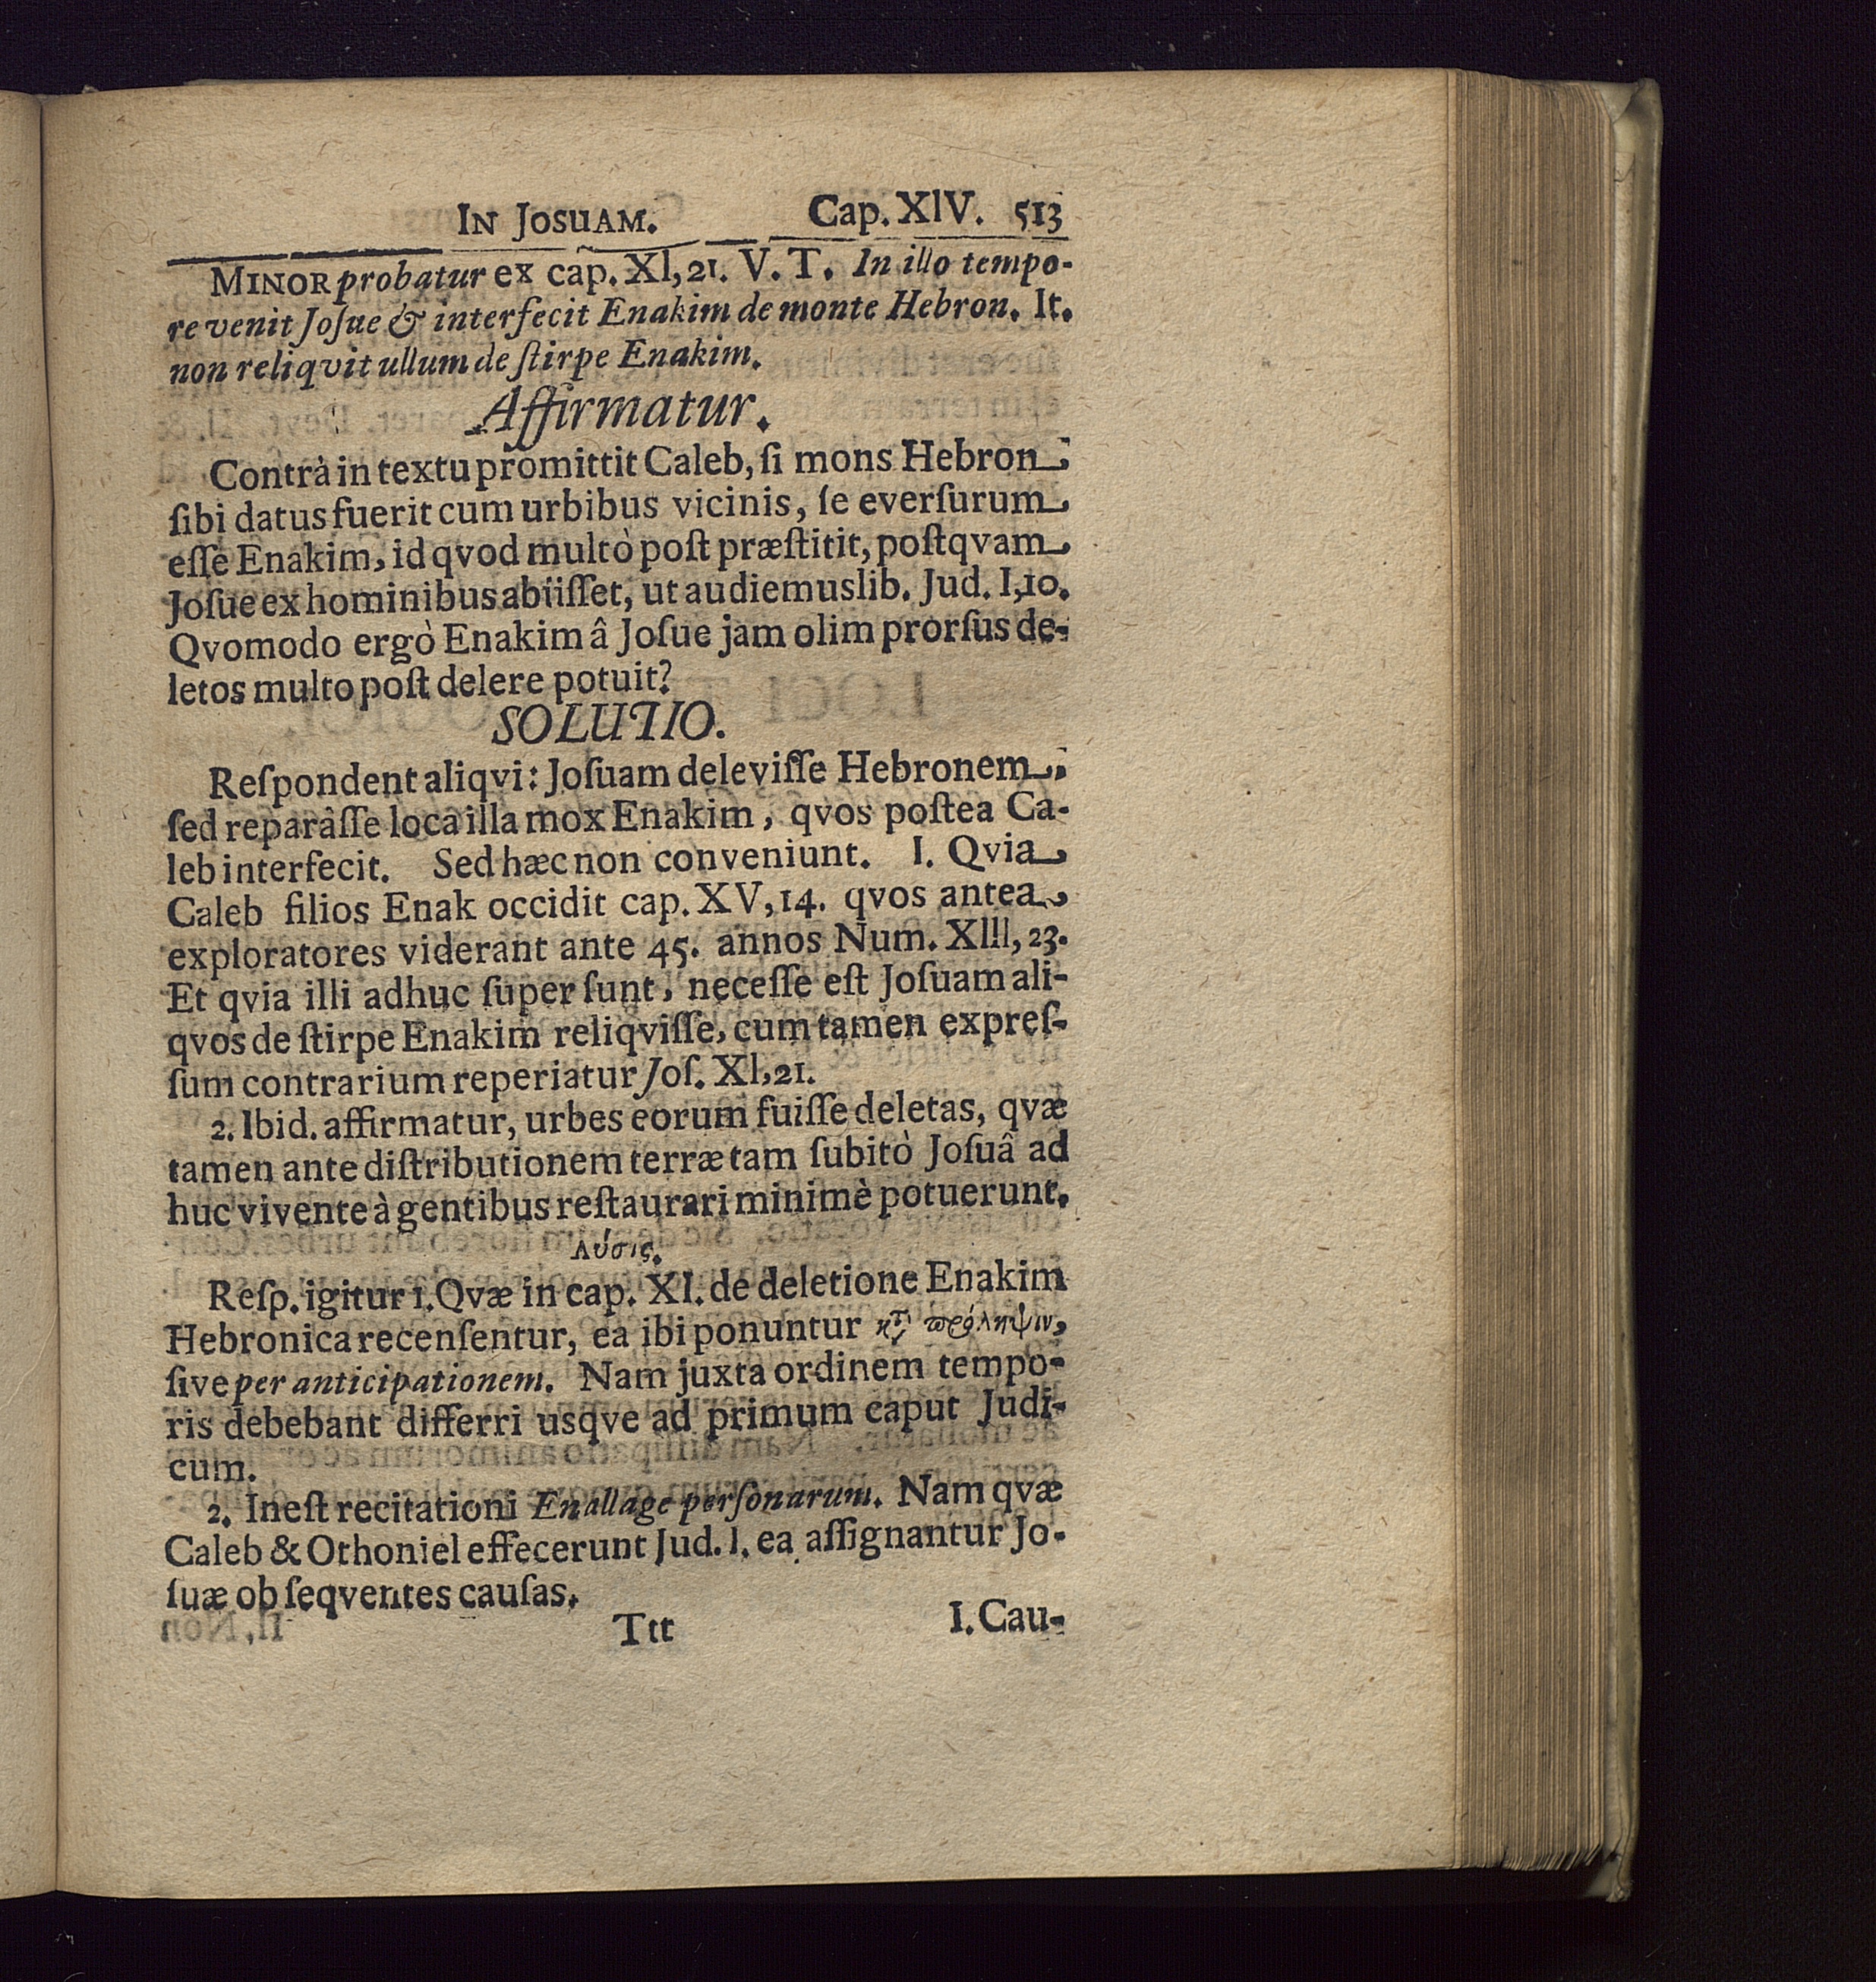 IN JOSUAM. Cap. XIV. 513
MINOR probatur ex cap. XI, 21. V. T. In illo tempo-
re venit Joſue & interfecit Enakim de monte Hebron. It.
non reliqvit ullum de ſtirpe Enakim.
Affirmatur.
Contrà in textu promittit Caleb, ſi mons Hebron
ſibi datus fuerit cum urbibus vicinis, ſe everſurum
eſſe Enakim, id qvod multò poſt præſtitit, poſtqvam
Joſue ex hominibus abiiſſet, ut audiemus lib. Jud. I, 10.
Qvomodo ergò Enakim â Joſue jam olim prorſus de-
letos multo poſt delere potuit?
SOLUTIO.
Reſpondent aliqvi: Joſuam deleviſſe Hebronem;
ſed reparâſſe loca illa mox Enakim, qvos poſtea Ca-
leb interfecit. Sed hæc non conveniunt. I. Qvia
Caleb filios Enak occidit cap. XV, 14. qvos antea
exploratores viderant ante 45. annos Num. XIII, 23.
Et qvia illi adhuc ſuper ſunt, neceſſe eſt Joſuam ali-
qvos de ſtirpe Enakim reliqviſſe, cum tamen expreſ-
ſum contrarium reperiatur Joſ. XI, 21.
2. Ibid. affirmatur, urbes eorum fuiſſe deletas, qvæ
tamen ante diſtributionem terræ tam ſubitò Joſuâ ad
huc vivente à gentibus reſtaurari minimè potuerunt.
λύσις.
Reſp. igitur 1. Qvæ in cap. XI. de deletione Enakim
Hebronica recenſentur, ea ibi ponuntur κτ̀ πρόληψιν,
ſive per anticipationem. Nam juxta ordinem tempo-
ris debebant differri usqve ad primum caput Judi-
cum.
2. Ineſt recitationi Enallage perſonarum. Nam qvæ
Caleb & Othoniel effecerunt Jud. I. ea aſſignantur Jo-
ſuæ ob ſeqventes cauſas.
Ttt I. Cau-